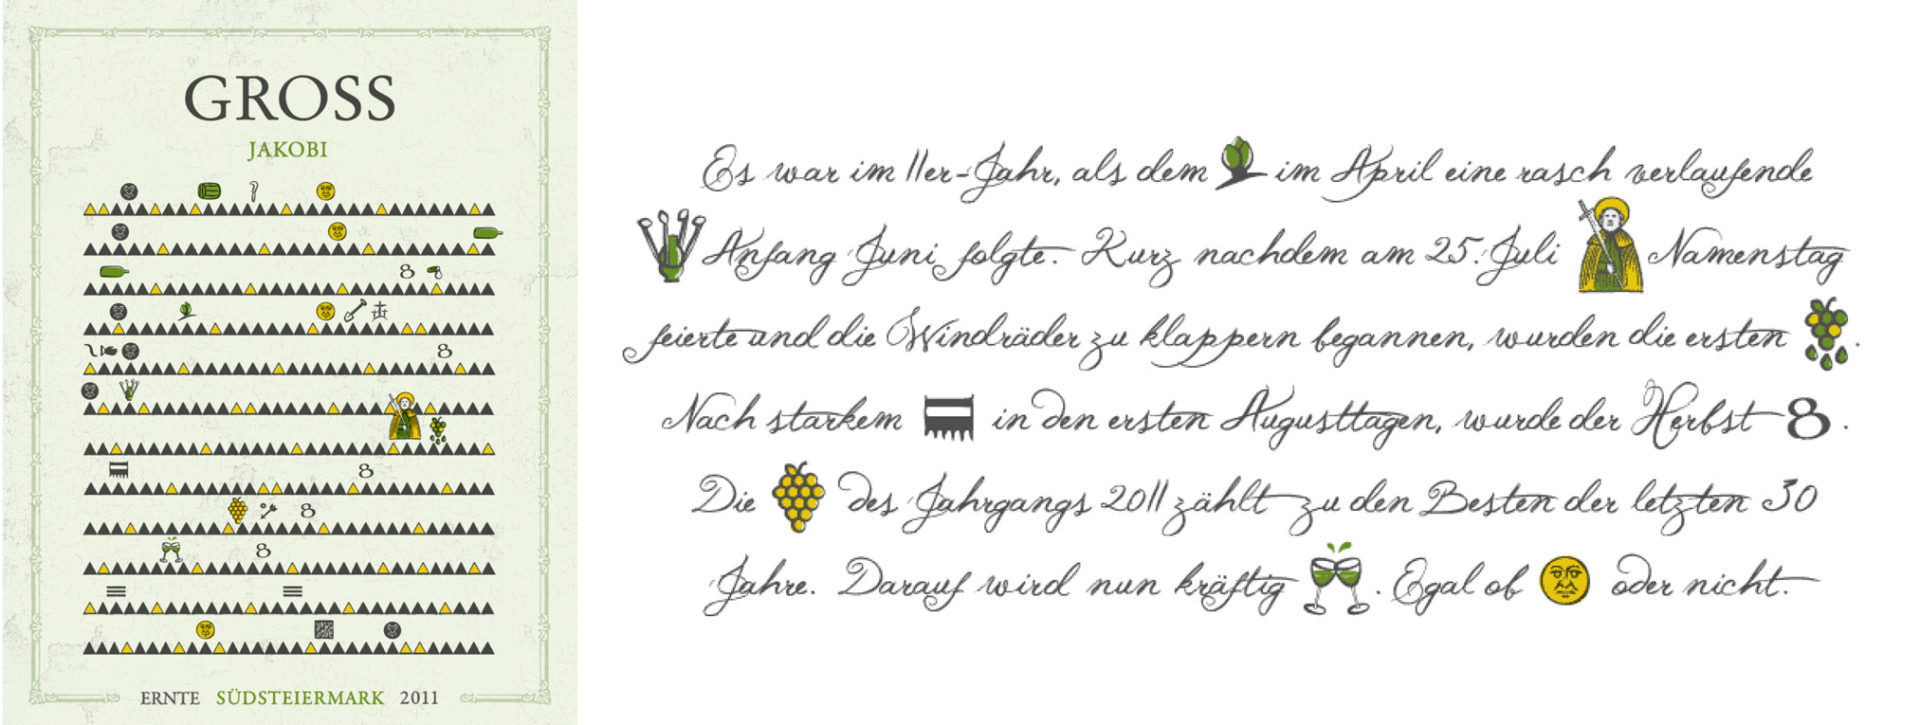 GROSS
JAKOBI
8
8
8
8
8
ERNTE SÜDSTEIERMARK 2011
Es war im 11er-Jahr, als dem im April eine rasch verlaufende
Anfang Juni folgte. Kurz nachdem am 25. Juli Namenstag
feierte und die Windräder zu klappern begannen, wurden die ersten .
Nach starkem in den ersten Augusttagen, wurde der Herbst 8 .
Die des Jahrgangs 2011 zählt zu den Besten der letzten 30
Jahre. Darauf wird nun kräftig . Egal ob oder nicht.